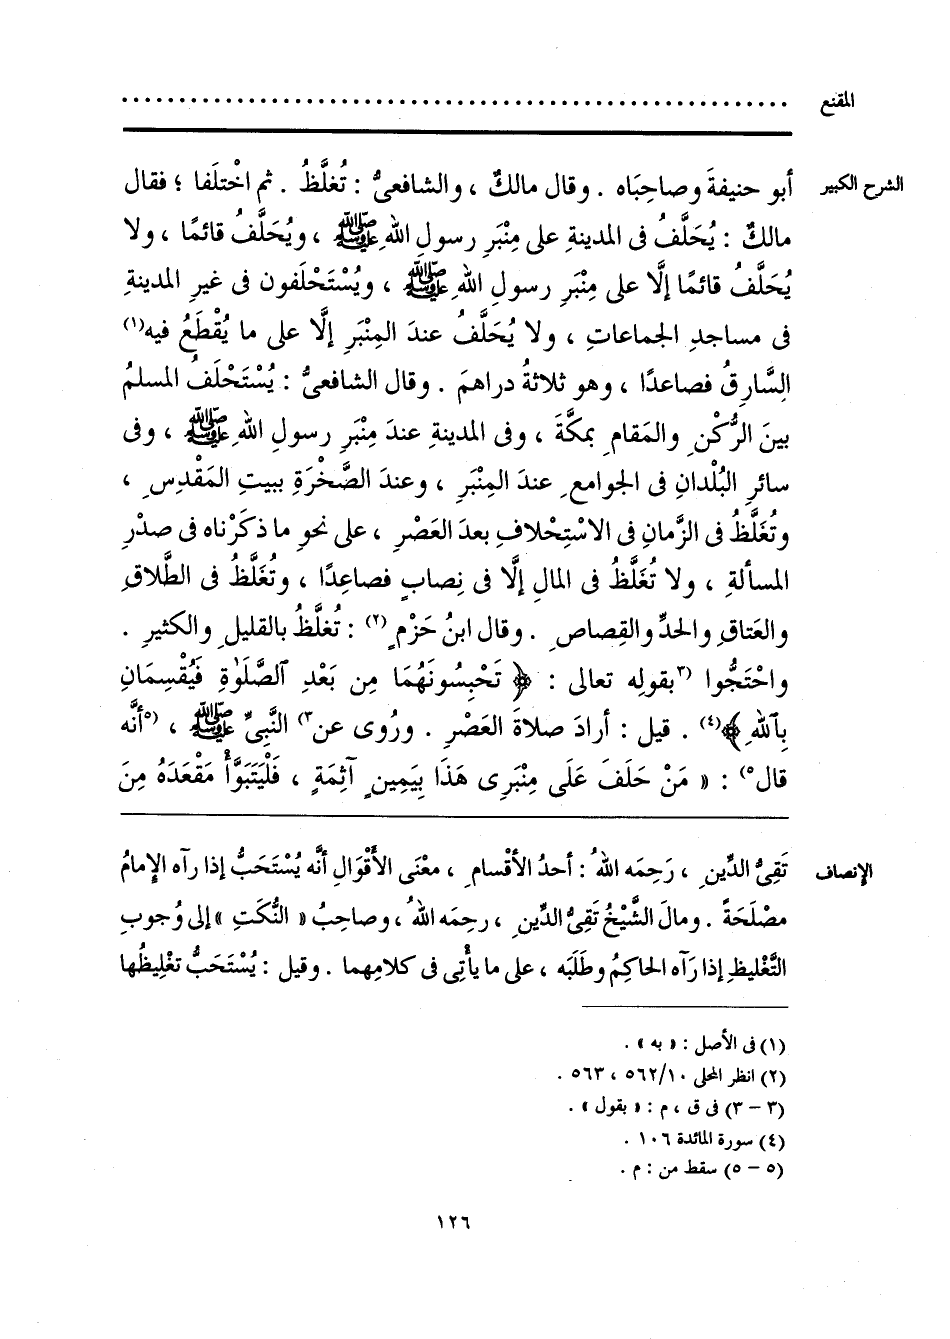 المقنع ........................................................
الشرح الكبير أبو حنيفةَ وصاحِبَاه . وقال مالكٌ ، والشافعىُّ : تُغلَّظُ . ثم اخْتلَفا ؛ فقال
مالكٌ : يُحَلَّفُ فى المدينةِ على مِنْبَرِ رسولِ اللهِ ﷺ ، ويُحَلَّفُ قائمًا ، ولا
يُحَلَّفُ قائمًا إلَّا على مِنْبَرِ رسولِ اللهِ ﷺ ، ويُسْتَحْلَفون فى غيرِ المدينةِ
فى مساجدِ الجماعاتِ ، ولا يُحَلَّفُ عندَ المِنْبَرِ إلَّا على ما يُقْطَعُ فيه(١)
السَّارِقُ فصاعدًا ، وهو ثلاثةُ دراهمَ . وقال الشافعىُّ : يُسْتَحْلَفُ المسلمُ
بينَ الرُّكْنِ والمَقامِ بمكَّةَ ، وفى المدينةِ عندَ مِنْبَرِ رسولِ اللهِ ﷺ ، وفى
سائرِ البُلْدانِ فى الجوامعِ عندَ المِنْبَرِ ، وعندَ الصَّخْرَةِ ببيتِ المَقْدِسِ ،
وتُغَلَّظُ فى الزَّمانِ فى الاسْتِحْلافِ بعدَ العَصْرِ ، على نحوِ ما ذكَرْناه فى صدْرِ
المسألةِ ، ولا تُغَلَّظُ فى المالِ إلَّا فى نِصابٍ فصاعِدًا ، وتُغَلَّظُ فى الطَّلاقِ
والعَتاقِ والحدِّ والقِصاصِ . وقال ابنُ حَزْمٍ(٢) : تُغلَّظُ بالقليلِ والكثيرِ .
واحْتَجُّوا (٣بقولِه تعالى : ﴿ تَحْبِسُونَهُمَا مِن بَعْدِ ٱلصَّلَوٰةِ فَيُقْسِمَانِ
بِٱللهِ ﴾(٤) . قيل : أرادَ صلاةَ العَصْرِ . ورُوى عن٣) النَّبِىِّ ﷺ ، (٥أنَّه
قال٥) : « مَنْ حَلَفَ عَلَى مِنْبَرِى هَذَا بِيَمِينٍ آثِمَةٍ ، فَلْيَتَبَوَّأْ مَقْعَدَهُ مِنَ
الإنصاف تَقِىُّ الدِّينِ ، رَحِمَه اللهُ : أحدُ الأقْسامِ ، معْنَى الأَقْوَالِ أنَّه يُسْتَحَبُّ إذا رآه الإِمامُ
مصْلَحَةً . ومالَ الشَّيْخُ تَقِىُّ الدِّينِ ، رحِمَه اللهُ ، وصاحِبُ « النُّكَتِ » إلى وُجوبِ
التَّغْليظِ إذا رَآه الحاكِمُ وطَلَبَه ، على ما يأْتِى فى كلامِهما . وقيل : يُسْتَحَبُّ تغْلِيظُها
(١) فى الأصل : « به » .
(٢) انظر المحلى ١٠/ ٥٦٢ ، ٥٦٣ .
(٣ - ٣) فى ق ، م : « بقول » .
(٤) سورة المائدة ١٠٦ .
(٥ - ٥) سقط من : م .
١٢٦